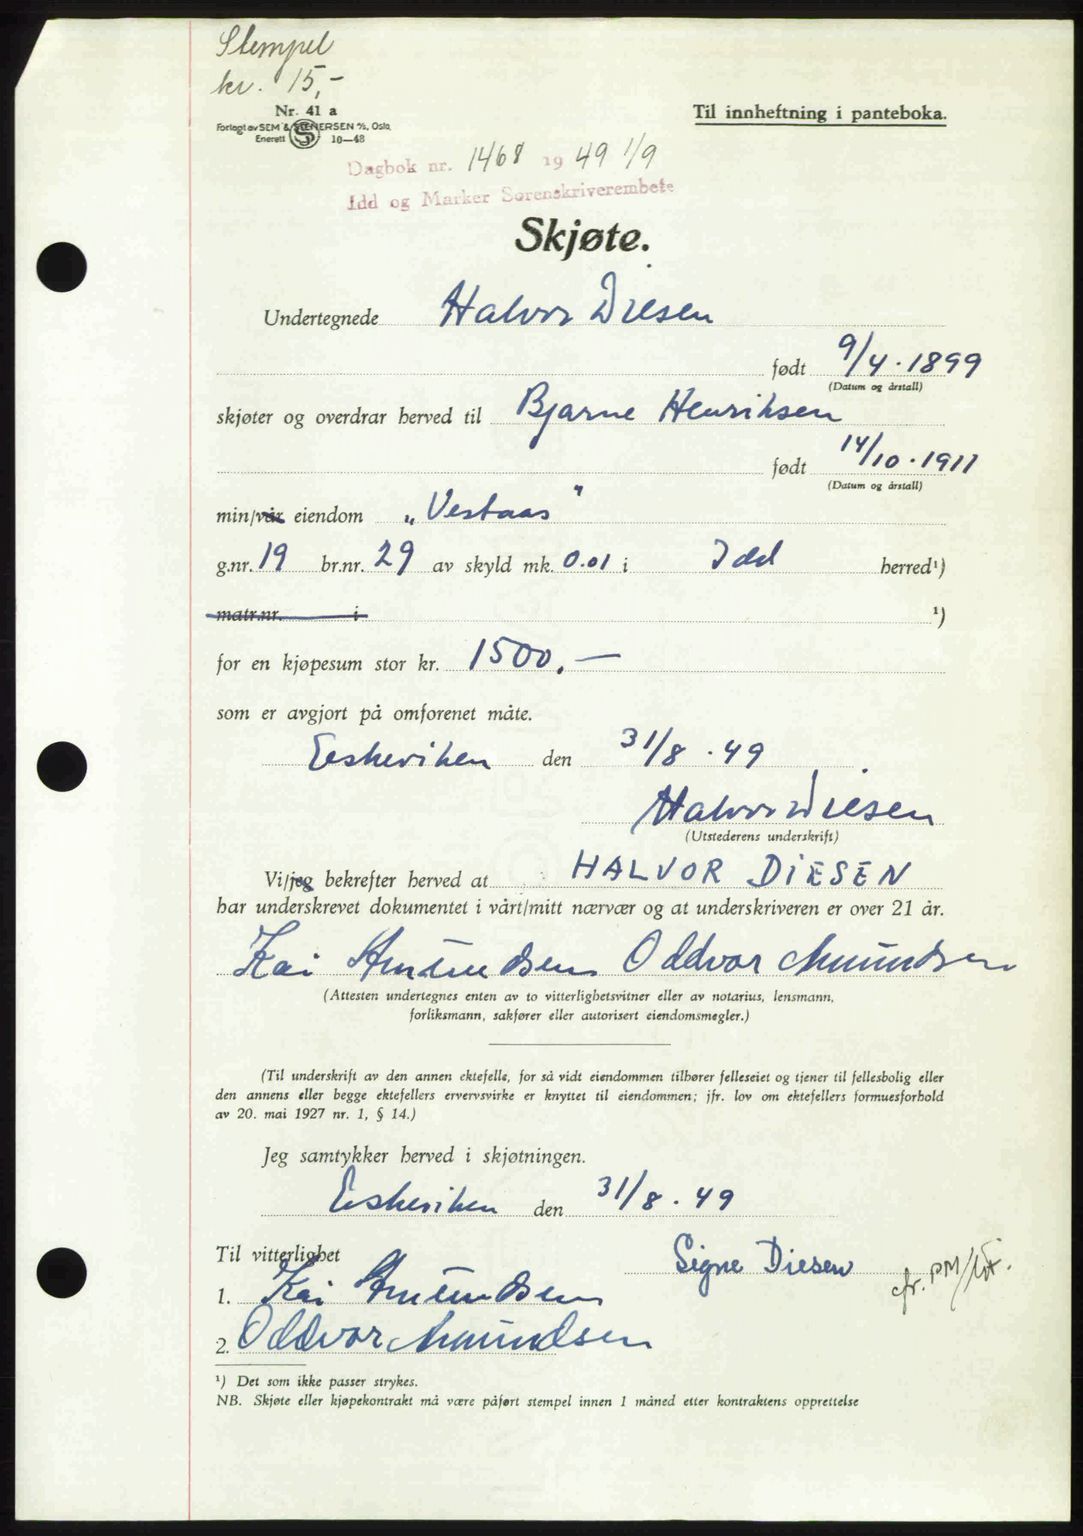 Stempel
kr. 15,-
Nr. 41 a
Forlagt av SEM & STENERSEN A/S, Oslo.
Enerett 10—48
Til innheftning i panteboka.
Dagbok nr. 1468 1949 1/9
Idd og Marker Sorenskriverembete
Skjøte.
Undertegnede Halvor Diesen
født 9/4.1899
(Datum og årstall)
skjøter og overdrar herved til Bjarne Henriksen
født 14/10.1911
(Datum og årstall)
min/vår eiendom „Vestaas"
g.nr. 19 br.nr. 29 av skyld mk. 0.01 i Idd herred¹)
matr.nr. i ¹)
for en kjøpesum stor kr. 1500,—
som er avgjort på omforenet måte.
Eskeviken den 31/8.49
Halvor Diesen
(Utstederens underskrift)
Vi/jeg bekrefter herved at HALVOR DIESEN
har underskrevet dokumentet i vårt/mitt nærvær og at underskriveren er over 21 år.
Kai Amundsen Oddvar Amundsen
(Attesten undertegnes enten av to vitterlighetsvitner eller av notarius, lensmann,
forliksmann, sakfører eller autorisert eiendomsmegler.)
(Til underskrift av den annen ektefelle, for så vidt eiendommen tilhører felleseiet og tjener til fellesbolig eller
den annens eller begge ektefellers ervervsvirke er knyttet til eiendommen; jfr. lov om ektefellers formuesforhold
av 20. mai 1927 nr. 1, § 14.)
Jeg samtykker herved i skjøtningen.
Eskeviken den 31/8.49
Til vitterlighet
Signe Diesen
1. Kai Amundsen
2. Oddvar Amundsen
¹) Det som ikke passer strykes.
NB. Skjøte eller kjøpekontrakt må være påført stempel innen 1 måned etter kontraktens opprettelse